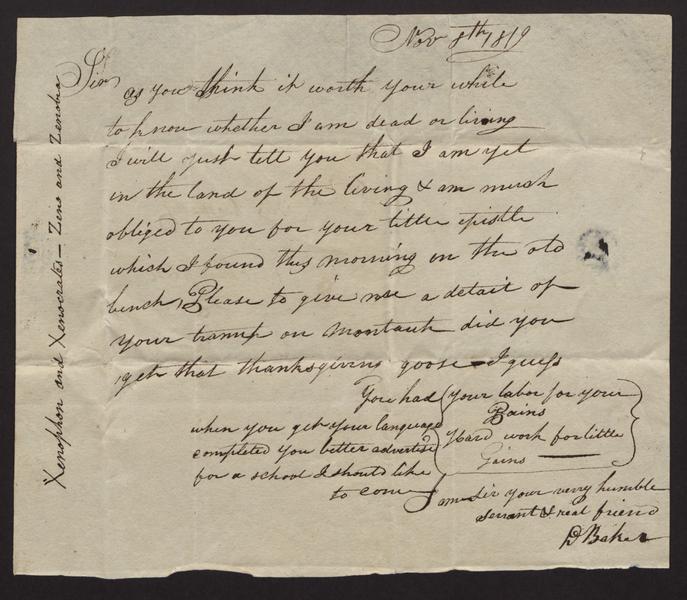 Nov 8th 1819
Sir
as you think it worth your while
to know whether I am dead or living
I will just tell you that I am yet
in the land of the living & am much
obliged to you for your little epistle
which I found this morning on the old
bench, Please to give me a detail of
your tramp on Montauk did you
get that thanksgiving goose - I guess
You had (your labor for your
Pains
Hard work for little
Gains —)
when you get your language
completed you better advertise
for a school I should like
to come
I am Sir your very humble
servant & real friend
D Baker
Xenophon and Xenocrates — Zeno and Zenobia